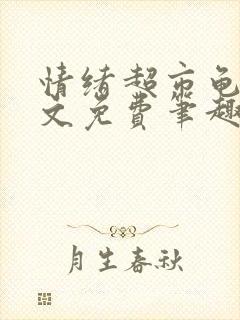 情绪超市龟
文免费笔趣
月生春秋